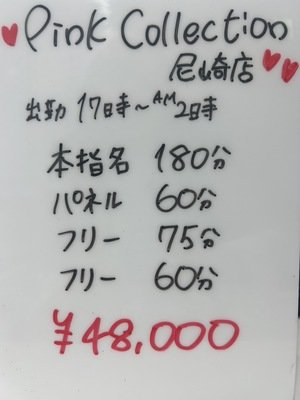 Pink Collection
尼崎店
出勤 17時～AM2時
本指名 180分
パネル 60分
フリー 75分
フリー 60分
¥48,000